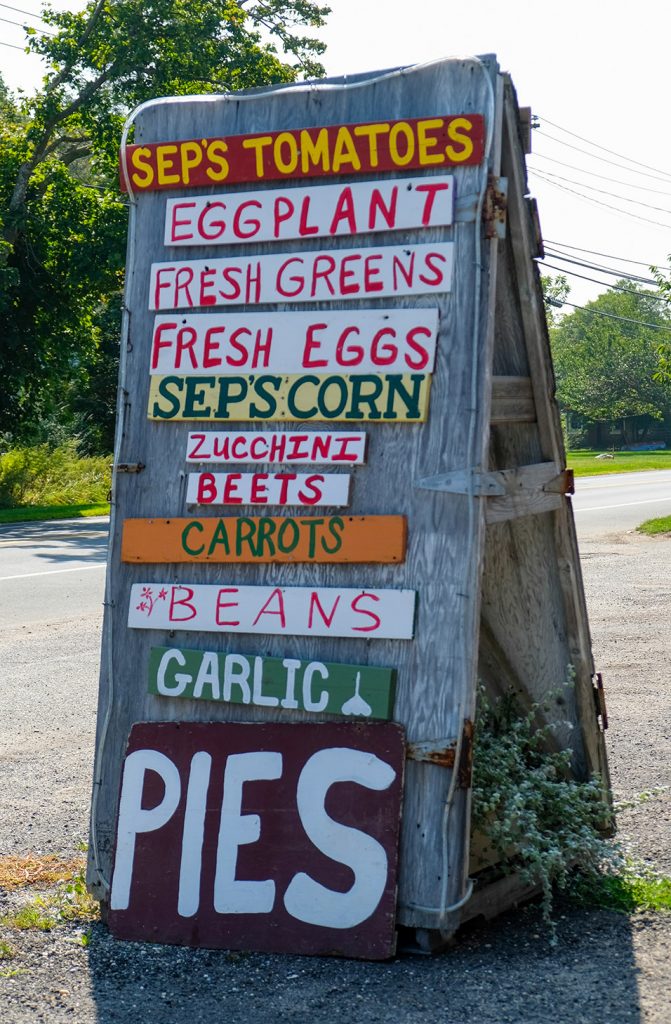 SEP'S TOMATOES
EGGPLANT
FRESH GREENS
FRESH EGGS
SEP'S CORN
ZUCCHINI
BEETS
CARROTS
BEANS
GARLIC
PIES